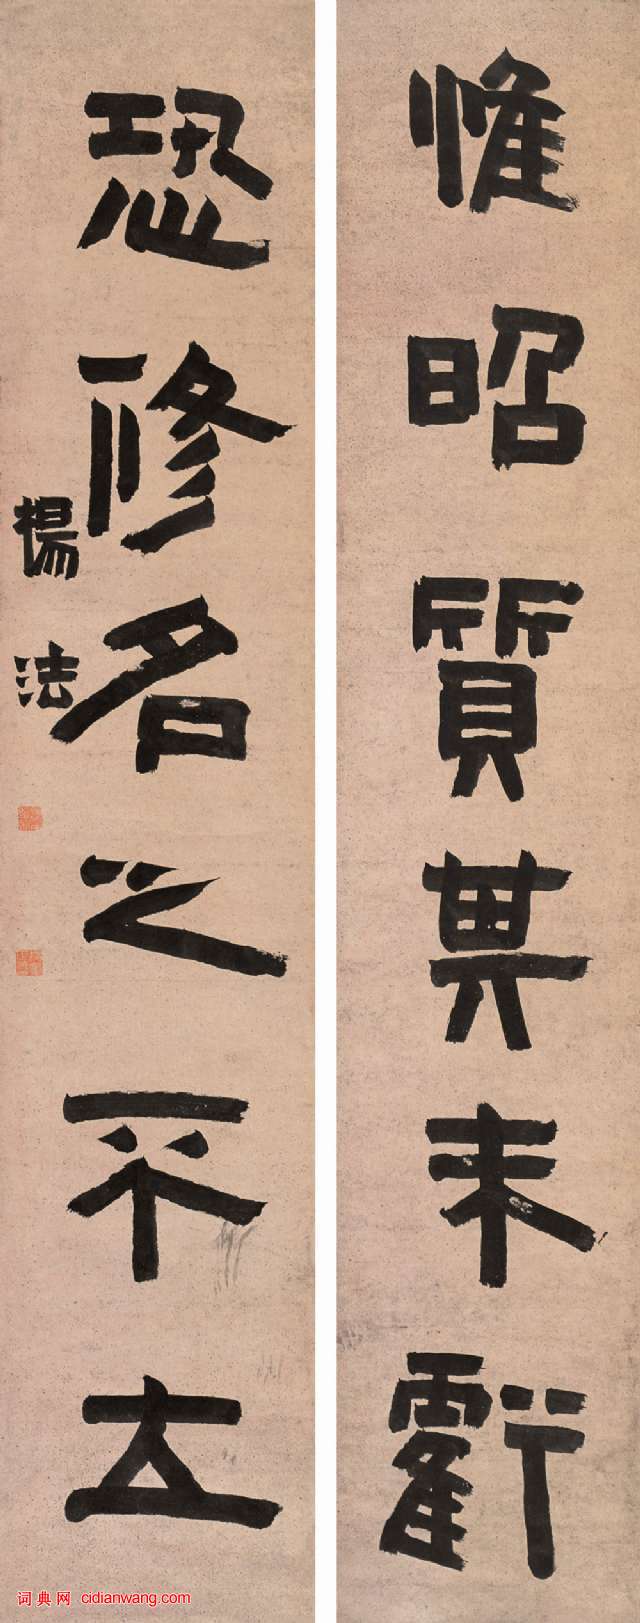 惟昭質其未虧
恐修名之不立
楊法
词典网 cidianwang.com